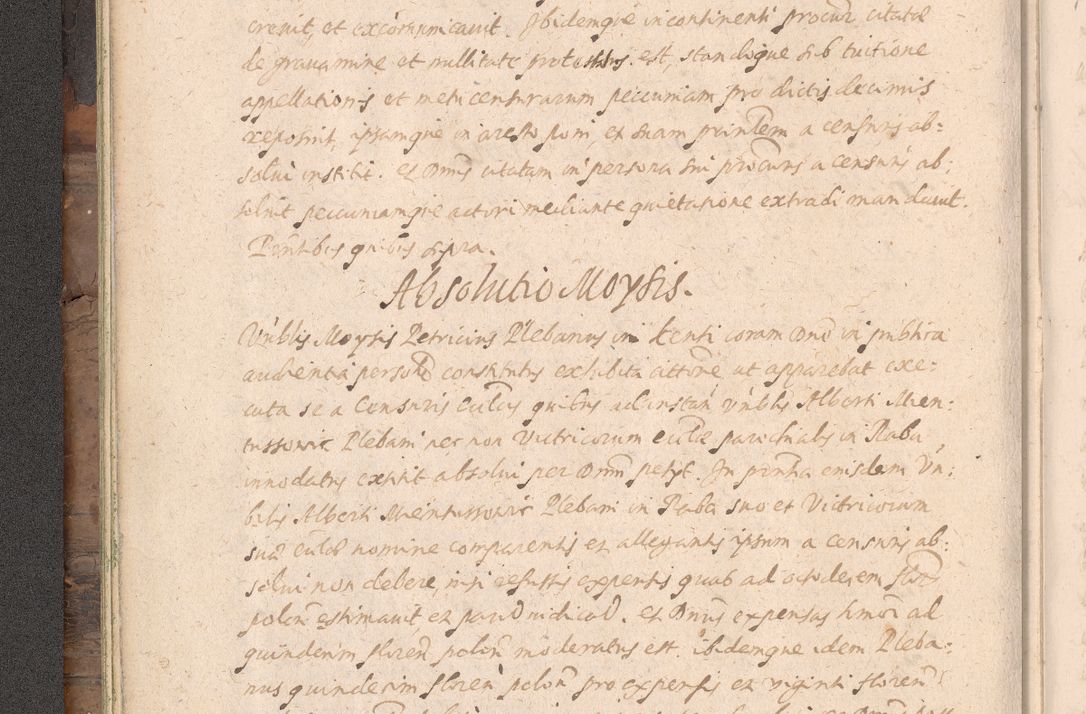 crevit, et excommunicavit. Ibidemque in continenti procur citatae
de gravamine et nullitate protestatus est, standoque sub tuitione
appellationis et metu censurarum peccuniam pro dictis decimis
reposuit, ipsamque in aresto poni, et suam prinlem a censuris ab:
solui institit. et Dnus citatam in persona sui procuris a censuris ab:
soluit peccuniamque actori mediante quietatione extradi mandavit.
Pnntibus quibus supra.
Absolutio Moysis.
Vnblis Moysis Petricius Plebanus in Kenti coram Dno in publica
audientia personlr constitutus exhibita cittone ut apparebat exe:
cuta se a Censuris Eclcis quibus ad instan vnblis Alberti Mien:
tussowic Plebani nec non Victricorum eclae parochialis in Raba
innodatus extitit absolui per Dnum petyt. In pnntia eiusdem Vn:
bilis Alberti Mientussowic Plebani in Raba suo et Victricorum
suae eclae nomine comparentis et allegantis ipsum a censuris ab:
solui non debere, nisi refussis expensis quas ad octodecem floren
polon estimavit et
et Dnus expensas hmoi ad
quindecim floren polon moderatus est, ibidemque idem Pleba:
nus quindecim floren polon pro expensis et viginti floren